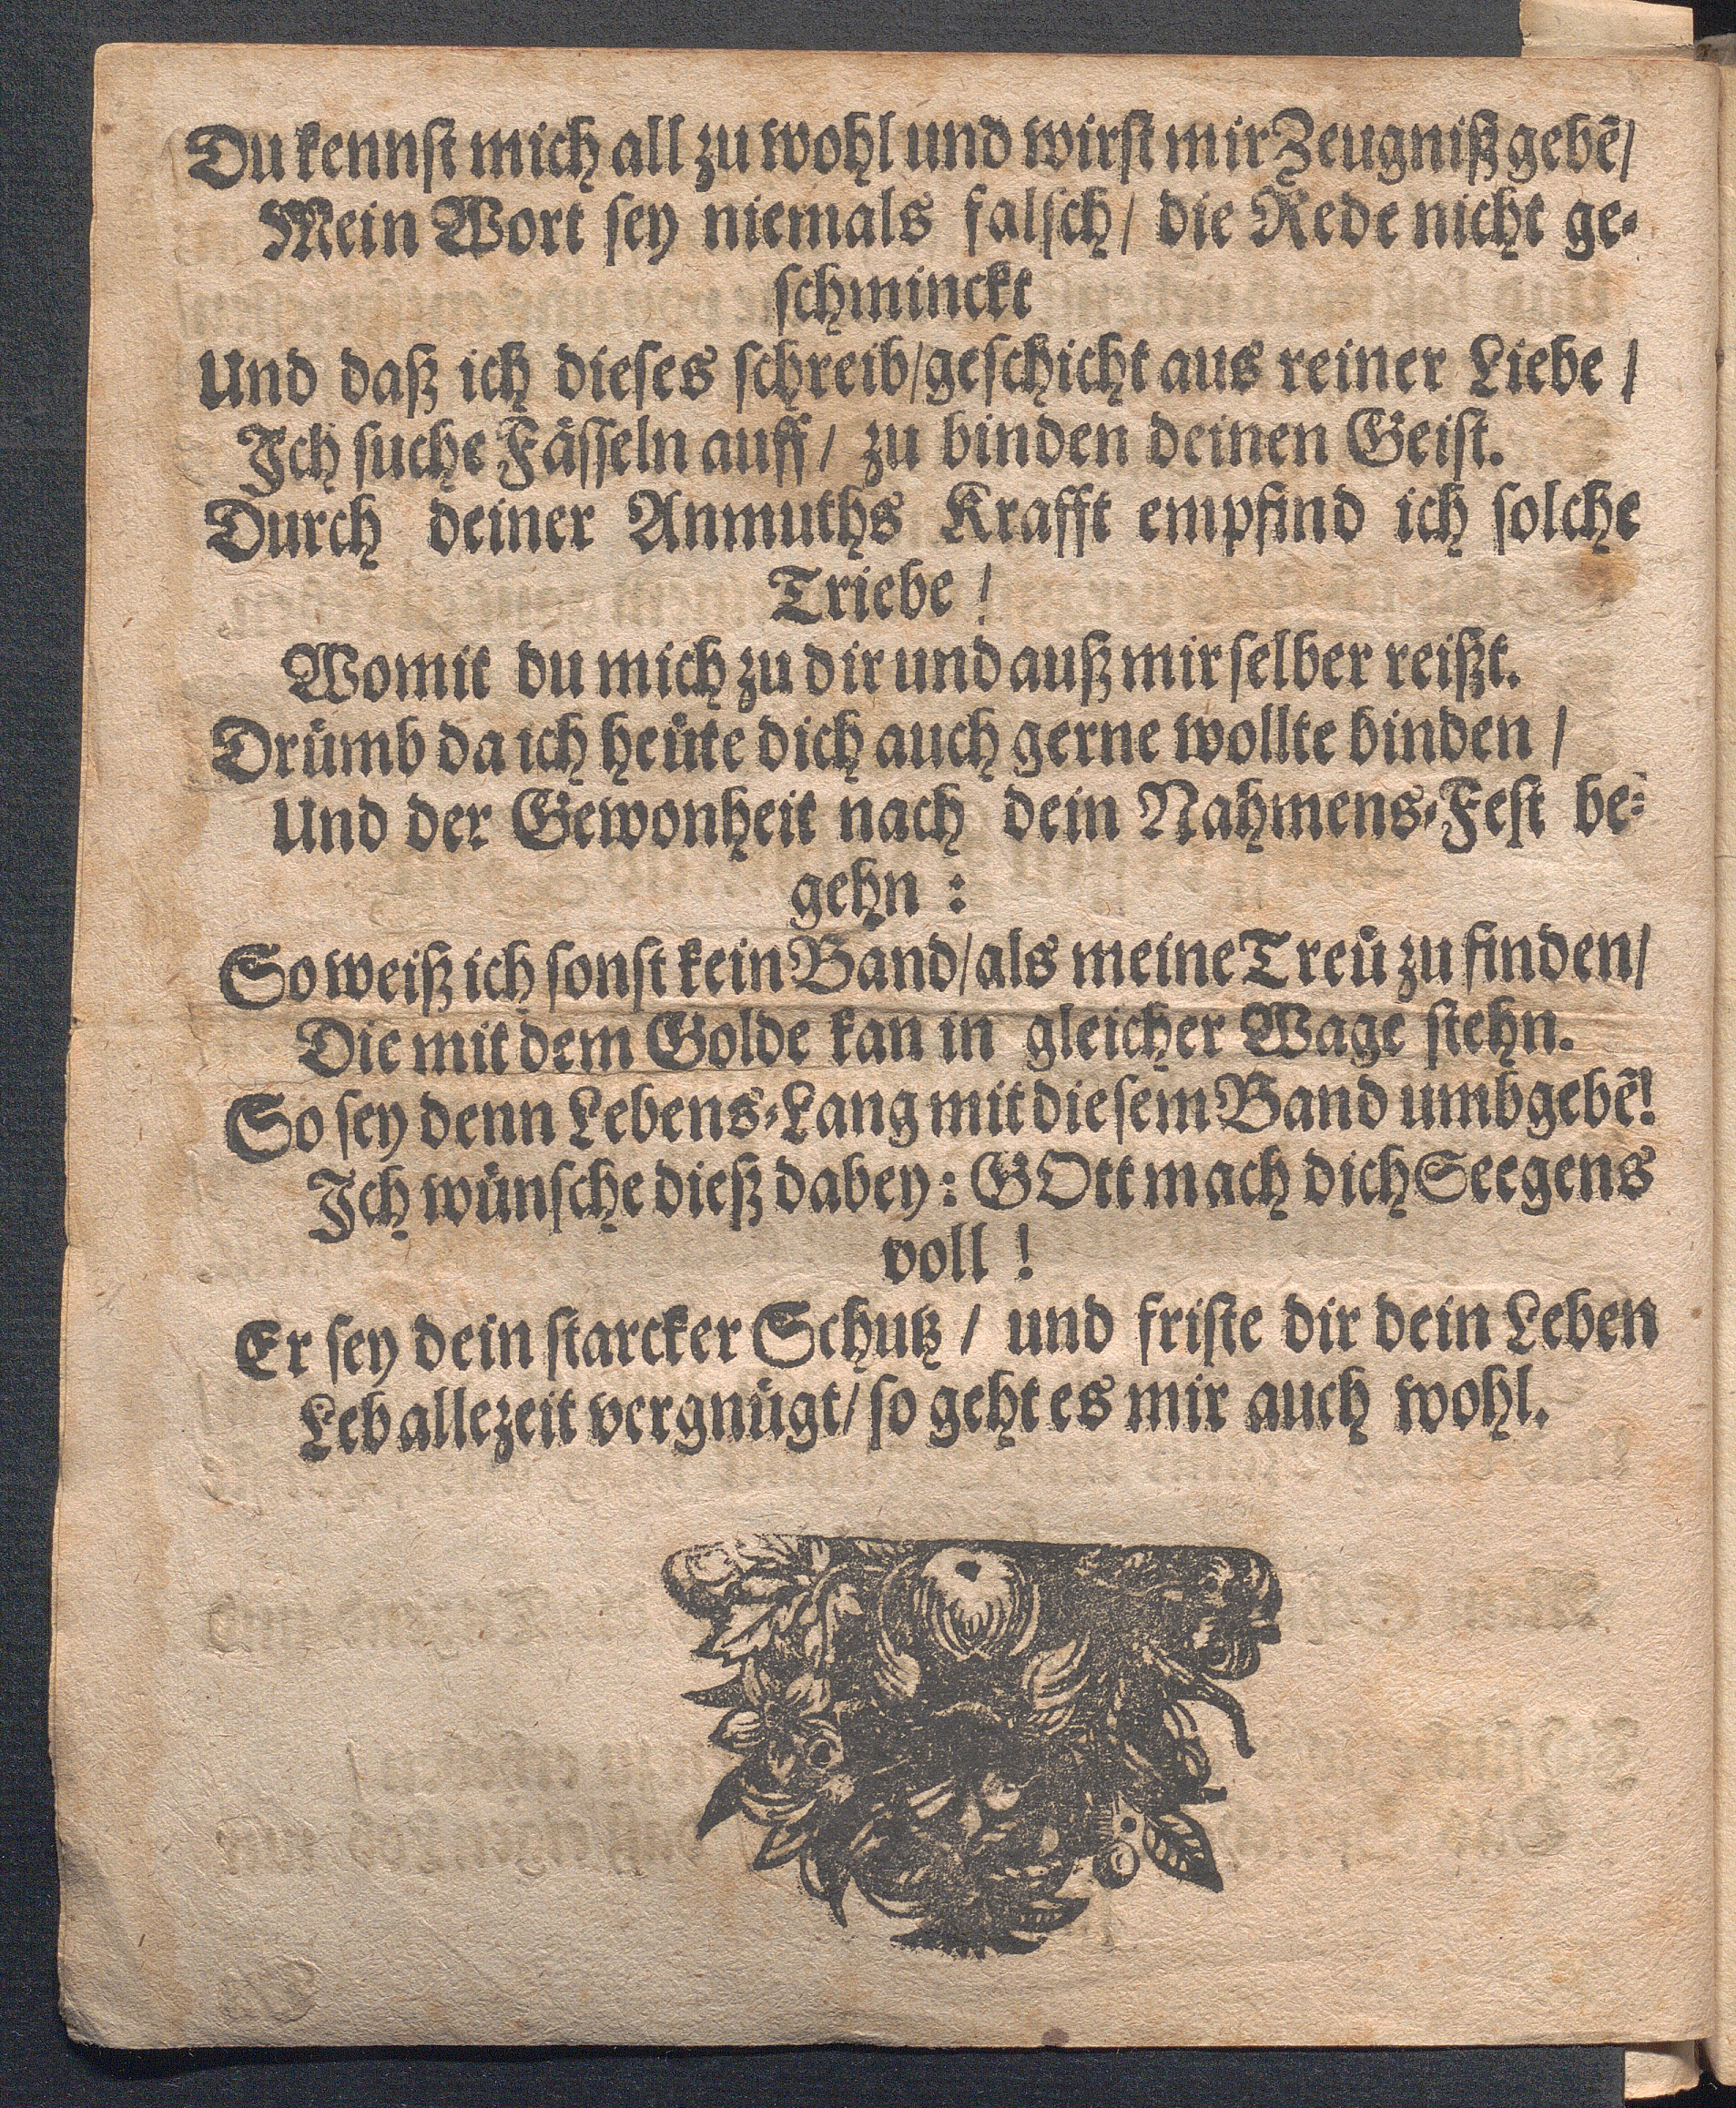 Du kennst mich all zu wohl und wirst mir Zeugniß gebē/
Mein Wort sey niemals falsch/ die Rede nicht ge-
schminckt
Und daß ich dieses schreib/geschicht aus reiner Liebe/
Ich suche Fässeln auff/ zu binden deinen Geist.
Durch deiner Anmuths Krafft empfind ich solche
Triebe/
Womit du mich zu dir und auß mir selber reißt.
Drümb da ich heüte dich auch gerne wollte binden/
Und der Gewonheit nach dein Nahmens-Fest be-
gehn:
So weiß ich sonst kein Band/als meine Treü zu finden/
Die mit dem Golde kan in gleicher Wage stehn.
So sey denn Lebens-Lang mit diesem Band umbgebē!
Ich wünsche dieß dabey: GOtt mach dich Seegens
voll!
Er sey dein starcker Schutz/ und friste dir dein Leben
Leb allezeit vergnügt/ so geht es mir auch wohl.